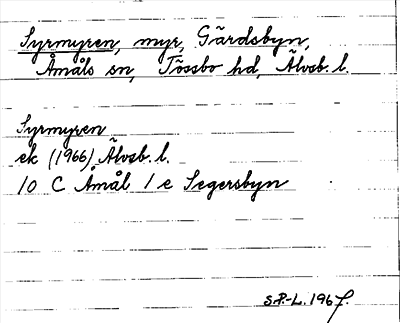 Syrmyren, myr, Gärdsbyn,
Åmåls sn, Tössbo hd, Älvsb. l.
Syrmyren
ek (1966) Älvsb. l.
10 C Åmål 1 e Segersbyn
S.P.-L. 1967.